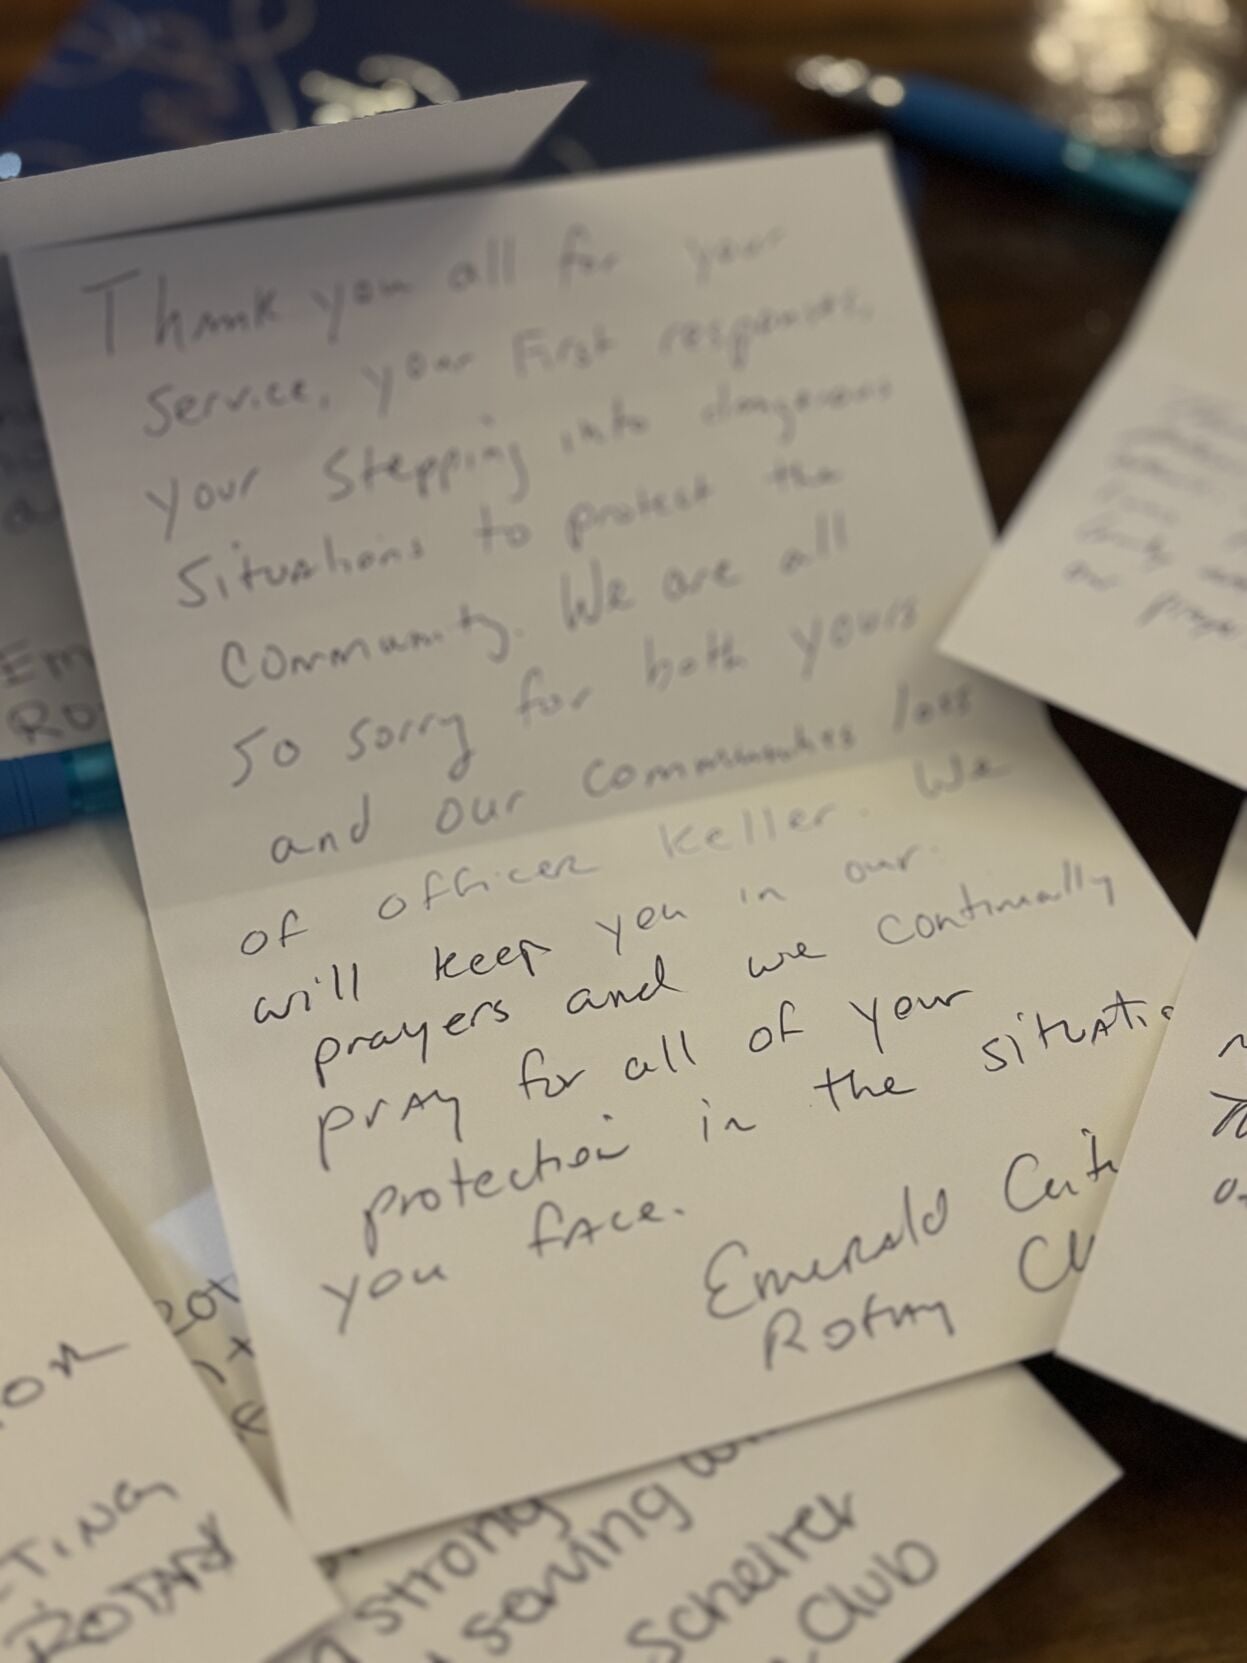 Thank you all for your
service, your First responses,
your stepping into dangerous
situations to protect the
community. We are all
so sorry for both yours
and our communities loss
of officer Keller. We
will keep you in our
prayers and we continually
pray for all of your
protection in the situatio
you face.
Emerald
Rotary Clu
Em
Ro
our
ROTARY
strong
serving
Scheirer
Club